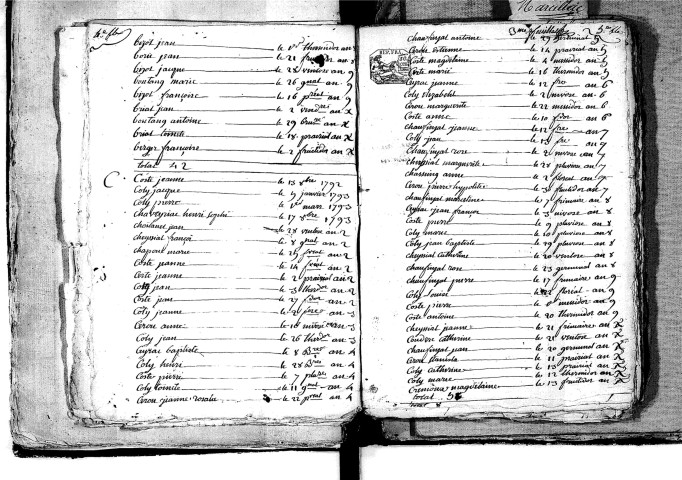 4e f.t
bizot jean le 1er thermidor an 8
borie jean le 21 fructidor an 8
bizot jacque le 28 ventose an 9
boutang marie le 26 gnal an 9
bizot françoise le 16 prerial an 9
briat jean le 2 vendre an X
boutang antoine le 29 brure an X
briat tointe le 18 prairial an X
berger françoise le 2 fructidor an X
total 42
C
Coste jeanne le 13 8bre 1792
Coly jacque le 9 janvier 1793
Coly pierre le 1er mars 1793
Chaveyriac henri le 17 8bre 1793
Choulance jean le 28 ventose an 2
cheyniat françoise le 8 gnal an 2
chapoux marie le 25 floreal an 2
Coste jeanne le 14 floreal an 2
Coste jeanne le 2 prairial an 2
Coly jean le 3 thdor an 2
Coste jean le 27 fdor an 2
Coly jeanne le 2 fre an 3
Cerou anne le 16 nivose an 3
Coly jean le 26 thdor an 3
Ceyrac baptiste le 8 Bres an 4
Coly henri le 28 Bres an 4
Coste pierre le 7 pluse an 4
Coly tointe le 11 gnal an 4
Cerou jeanne rosalie le 22 preal an 4
Marcillac
3me feuillet
5me f.t
Chaufingal antoine le 29 germinal 5
Cerou etienne le 14 prairial an 5
Coste magdelaine le 4 messidor an 5
Coste marie le 16 thermidor an 5
Ceyrac jeanne le 12 fre an 6
Coly elizabeth le 2 nivose an 6
Cerou marguerite le 22 messidor an 6
Coste anne le 10 fdor an 6
Chaufingal jeanne le 12 fre an 7
Coly jean le 13 fre an 7
Chaufingal rose le 2 nivose an 7
Cheyniat marguerite le 28 pluviose an 7
charming anne le 2 floreal an 7
Cerou pierre hypolite le 3 fructidor an 7
chaufingal marceline le 7 frimaire an 8
Ceyrac jean françois le 3 nivose an 8
Coste pierre le 9 pluviose an 8
Coly marie le 10 pluviose an 8
Coly jean baptiste le 29 pluviose an 8
cheyniat catherine le 20 ventose an 8
Chaufingal rose le 23 germinal an 8
Chaufingal pierre le 17 frimaire an 9
Coly louise le 22 floreal an 9
Coste pierre le 8 messidor an 9
Coste antoine le 20 thermidor an 9
Cheyniat jeanne le 21 frimaire an X
Coudere catherine le 21 ventose an X
Chaufingal jean le 20 germinal an X
Cerou le 11 prairial an X
Coly catherine le 13 prairial an X
Coly marie le 12 thermidor an X
Cremoux magdelaine le 13 fructidor an X
total 51